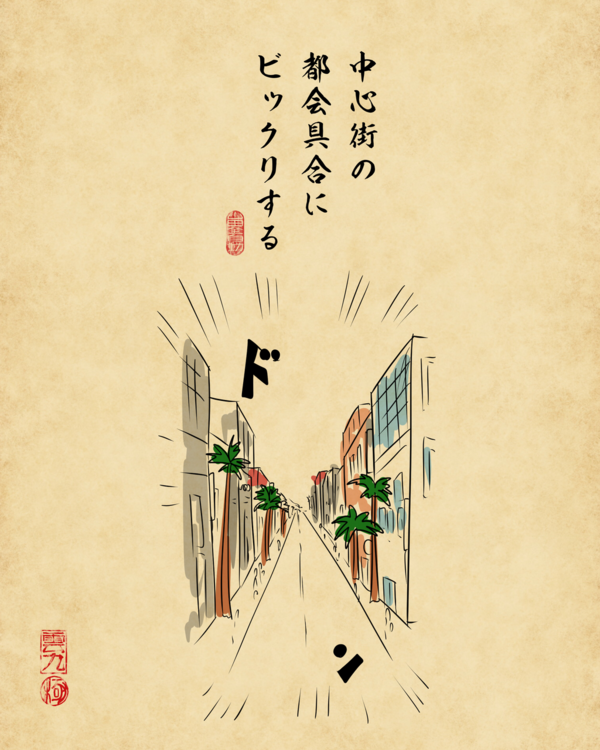 中心街の
都会具合に
ビックリする
ドン